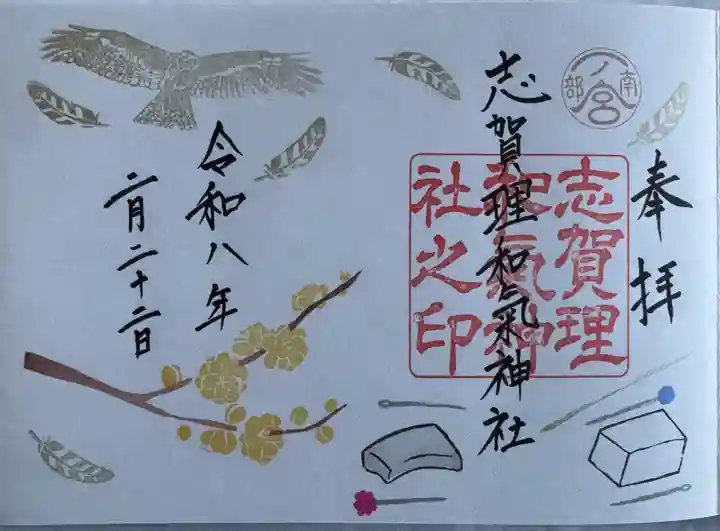 奉拝
南部
一ノ宮
志賀理和氣神社
志賀理
和氣神
社之印
令和八年
二月二十二日